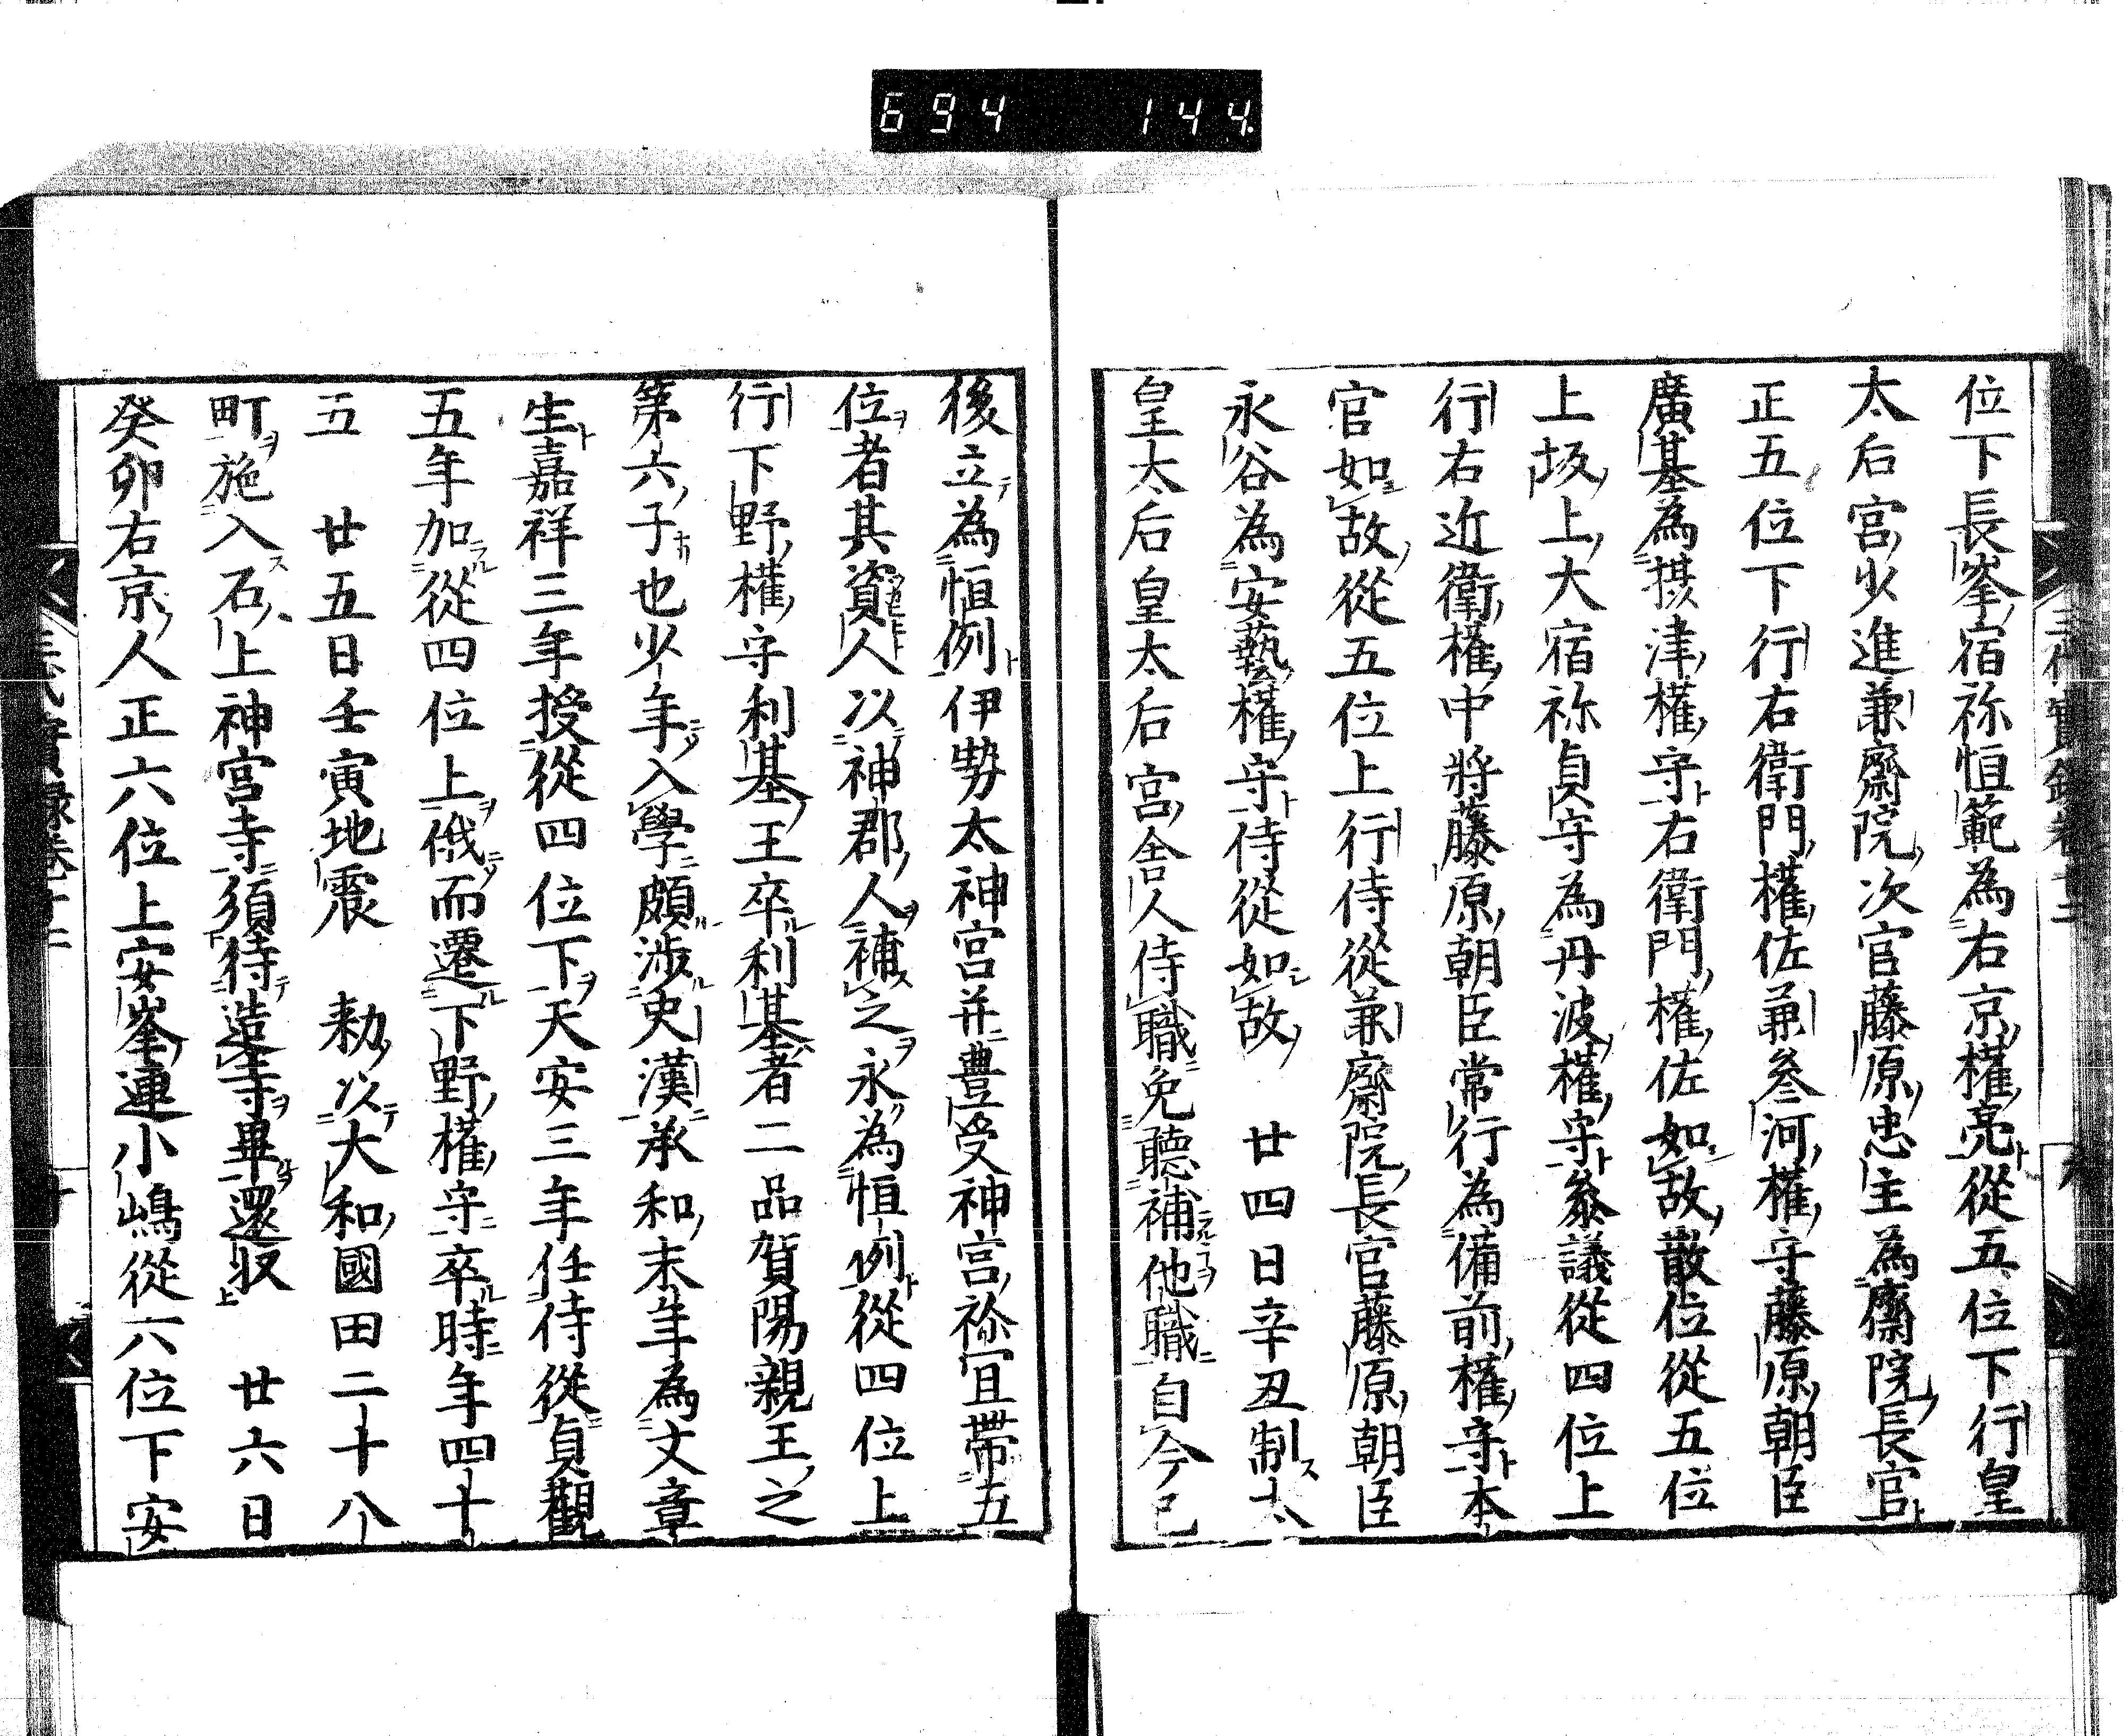 694 144
位下長岑宿祢恒範為右京權亮從五位下行皇
太后宮少進兼齋院次官藤原忠主為齋院長官
正五位下行右衛門權佐兼參河權守藤原朝臣
廣基為摂津權守右衛門權佐如故散位從五位
上坂上大宿祢貞守為丹波權守叅議從四位上
行右近衛權中將藤原朝臣常行為備前權守本
官如故從五位上行侍從兼齋院長官藤原朝臣
永谷為安藝權守侍從如故　廿四日辛丑制太
皇太后皇太后宮舍人侍職免聽補他職自今已
後立為恒例伊勢太神宮并豊受神宮祢宜帶五
位者其資人以神郡人補之永為恒例從四位上
行下野權守利基王卒利基者二品賀陽親王之
第六子也少年入學頗涉史漢承和末年為文章
生嘉祥三年授從四位下天安三年任侍從貞觀
五年加從四位上俄而遷下野權守卒時年四十
五　廿五日壬寅地震　勑以大和國田二十八
町施入石上神宮寺須待造寺畢還収　廿六日
癸卯右京人正六位上安岑連小嶋從六位下安